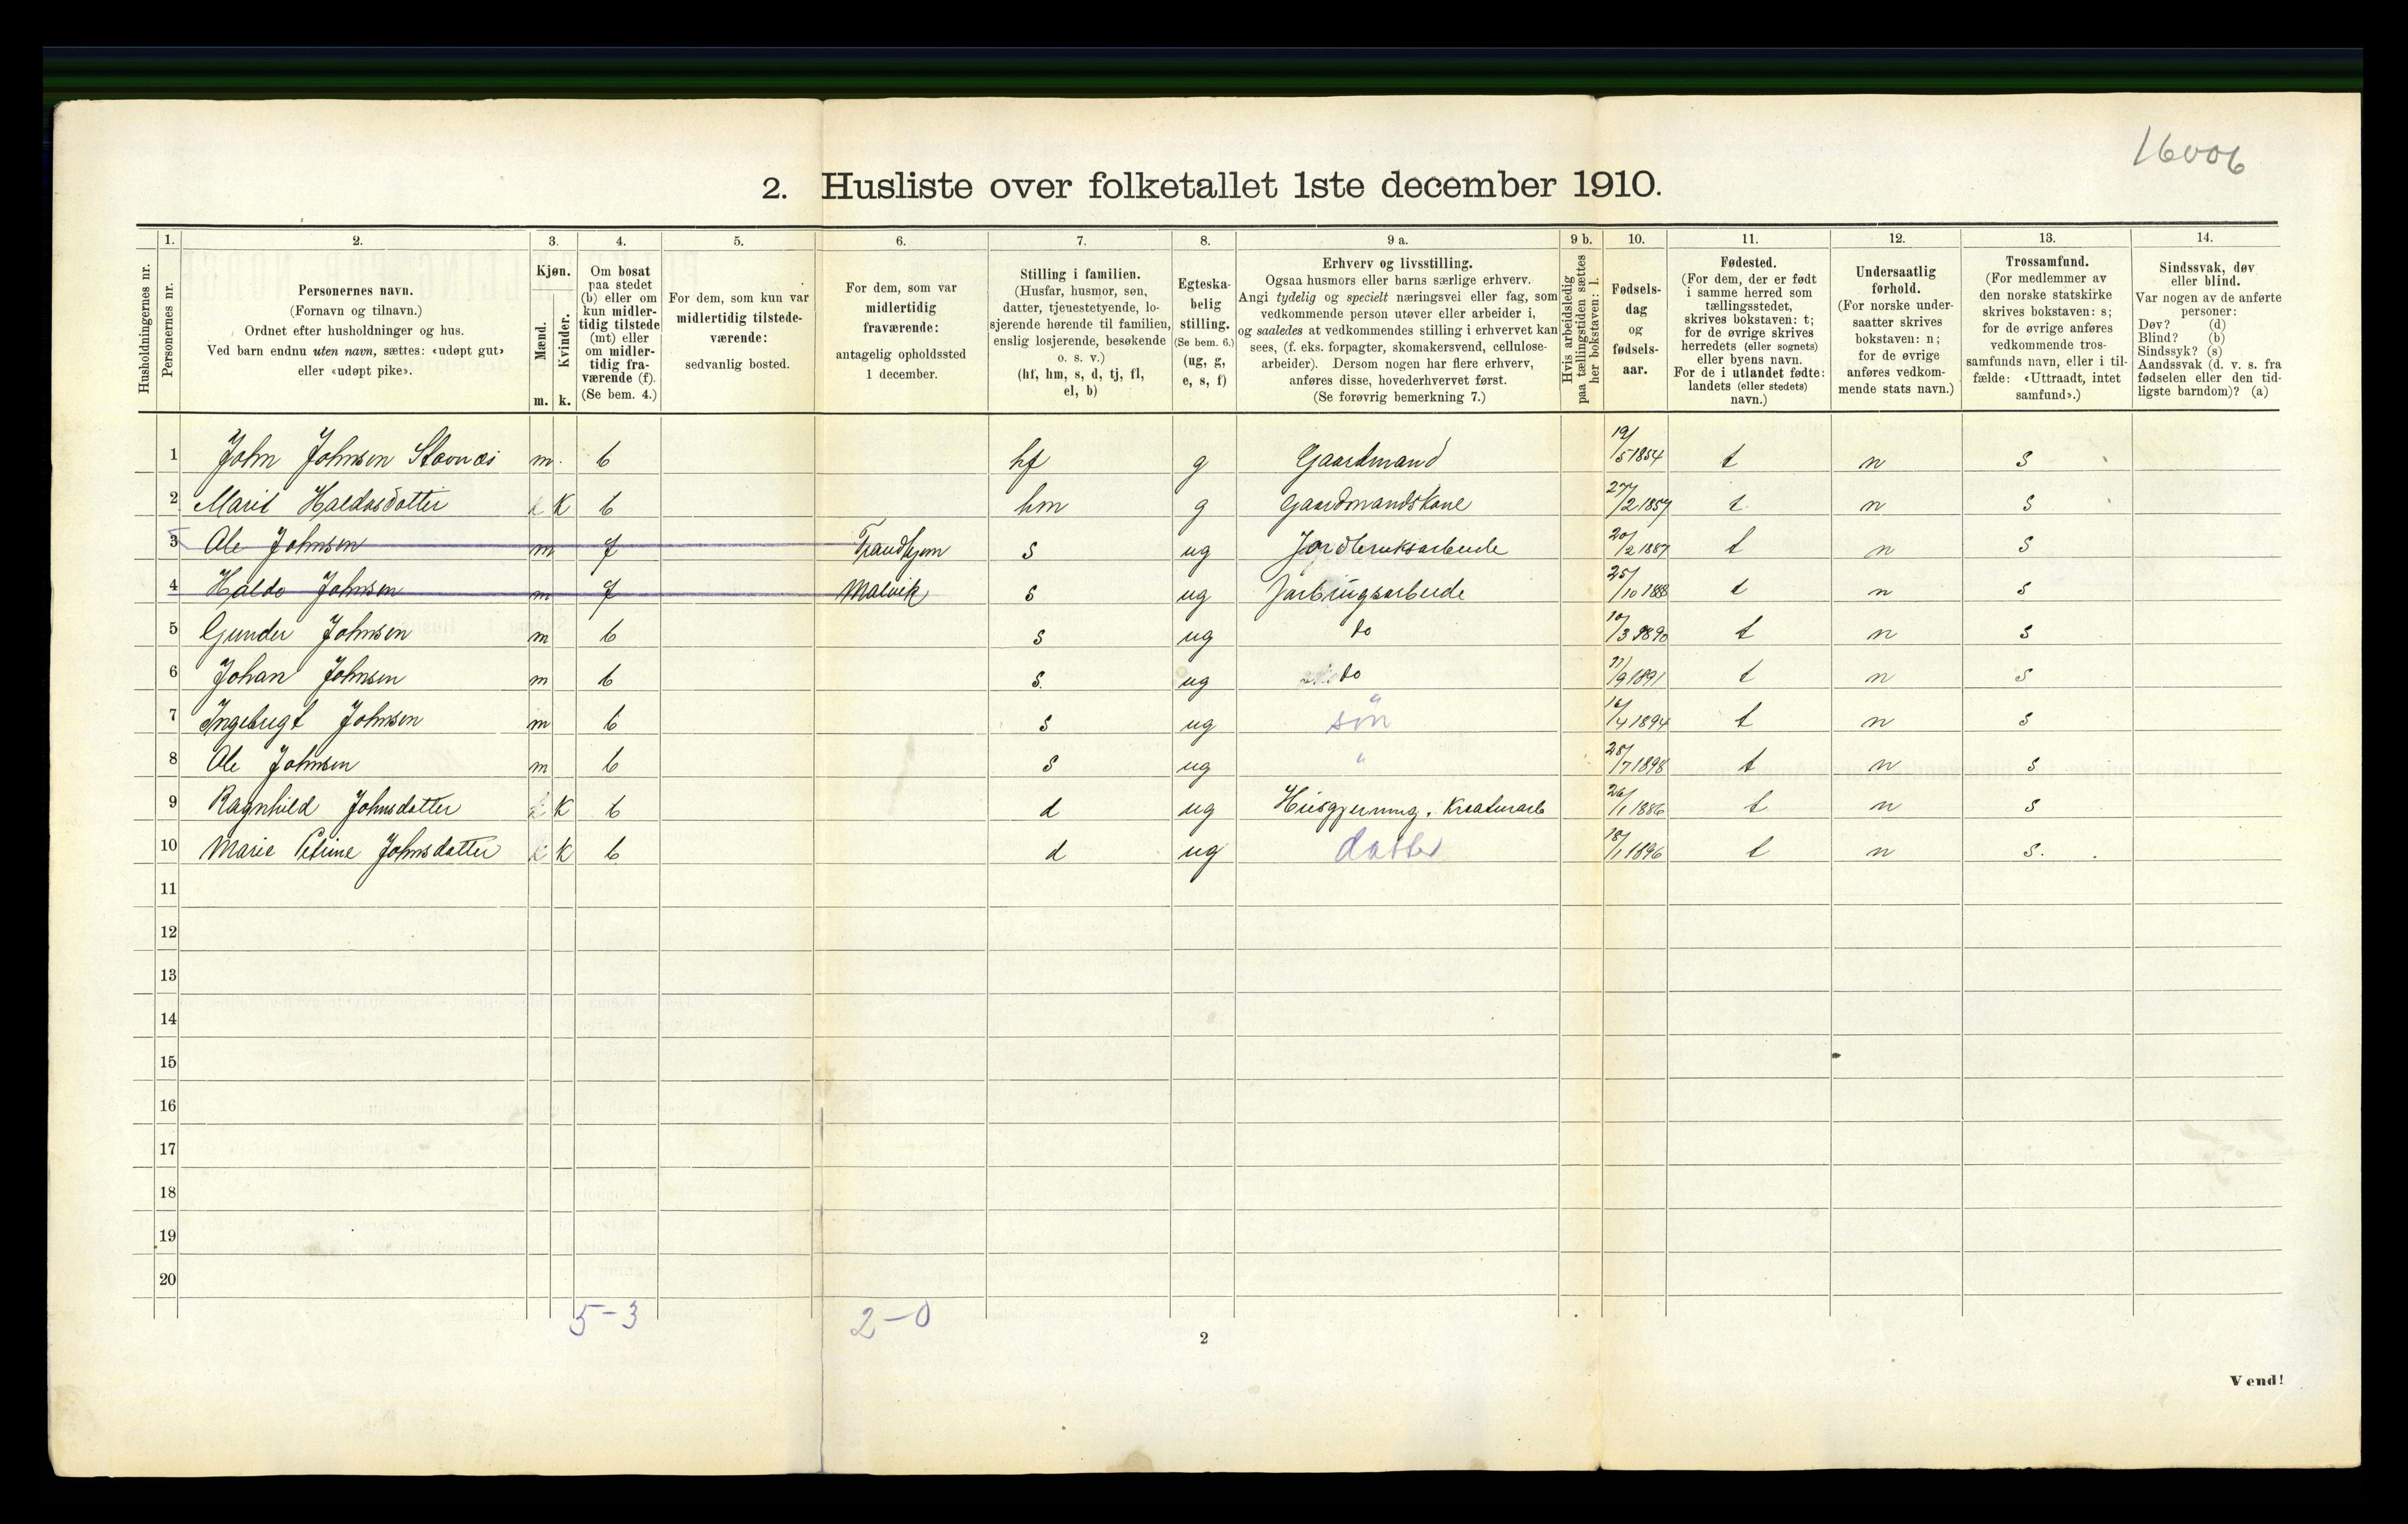 16006
2. Husliste over folketallet 1ste december 1910.
Husholdningernes nr.
1. Personernes nr.
2. Personernes navn. (Fornavn og tilnavn.) Ordnet efter husholdninger og hus. Ved barn endnu uten navn, sættes: «udøpt gut» eller «udøpt pike».
3. Kjøn. Mænd. m. Kvinder. k.
4. Om bosat paa stedet (b) eller om kun midlertidig tilstede (mt) eller om midlertidig fraværende (f). (Se bem. 4.)
5. For dem, som kun var midlertidig tilstedeværende: sedvanlig bosted.
6. For dem, som var midlertidig fraværende: antagelig opholdssted 1 december.
7. Stilling i familien. (Husfar, husmor, søn, datter, tjenestetyende, losjerende hørende til familien, enslig losjerende, besøkende o. s. v.) (hf, hm, s, d, tj, fl, el, b)
8. Egteskabelig stilling. (Se bem. 6.) (ug, g, e, s, f)
9 a. Erhverv og livsstilling. Ogsaa husmors eller barns særlige erhverv. Angi tydelig og specielt næringsvei eller fag, som vedkommende person utøver eller arbeider i, og saaledes at vedkommendes stilling i erhvervet kan sees, (f. eks. forpagter, skomakersvend, cellulosearbeider). Dersom nogen har flere erhverv, anføres disse, hovederhvervet først. (Se forøvrig bemerkning 7.)
9 b. Hvis arbeidsledig paa tællingstiden sættes her bokstaven: l.
10. Fødselsdag og fødselsaar.
11. Fødested. (For dem, der er født i samme herred som tællingsstedet, skrives bokstaven: t; for de øvrige skrives herredets (eller sognets) eller byens navn. For de i utlandet fødte: landets (eller stedets) navn.)
12. Undersaatlig forhold. (For norske undersaatter skrives bokstaven: n; for de øvrige anføres vedkommende stats navn.)
13. Trossamfund. (For medlemmer av den norske statskirke skrives bokstaven: s; for de øvrige anføres vedkommende trossamfunds navn, eller i tilfælde: «Uttraadt, intet samfund».)
14. Sindssvak, døv eller blind. Var nogen av de anførte personer: Døv? (d) Blind? (b) Sindssyk? (s) Aandssvak (d. v. s. fra fødselen eller den tidligste barndom)? (a)
1 John Johnsen Stavnæs m. b hf g Gaardmand 19/5 1854 t n s
2 Marit Haldosdatter k b hm g Gaardmandskone 27/2 1857 t n s
3 Ole Johnsen m f Trandhjem s ug Jordbruksarbeide 20/2 1887 t n s
4 Haldo Johnsen m f Malvik s ug Jorbrugsarbeide 25/10 1888 t n s
5 Gunder Johnsen m b s ug do 10/3 1890 t n s
6 Johan Johnsen m b s. ug do 11/9 1891 t n s
7 Ingebrigt Johnsen m b s ug søn 16/4 1894 t n s
8 Ole Johnsen m b s ug " 28/7 1898 t n s
9 Ragnhild Johnsdatter k b d ug Husgjerning. Kreaturarb 26/1 1886 t n s
10 Marie Petrine Johnsdatter k b d ug datter 18/1 1896 t n s.
11
12
13
14
15
16
17
18
19
20
5-3 2-0
2
Vend!